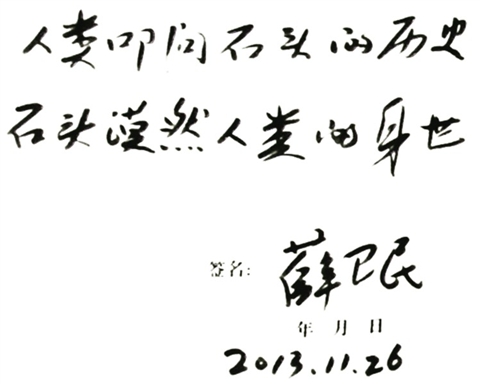 人类叩问石头的历史
石头漠然人类的身世
签名: 薛卫民
年 月 日
2013.11.26